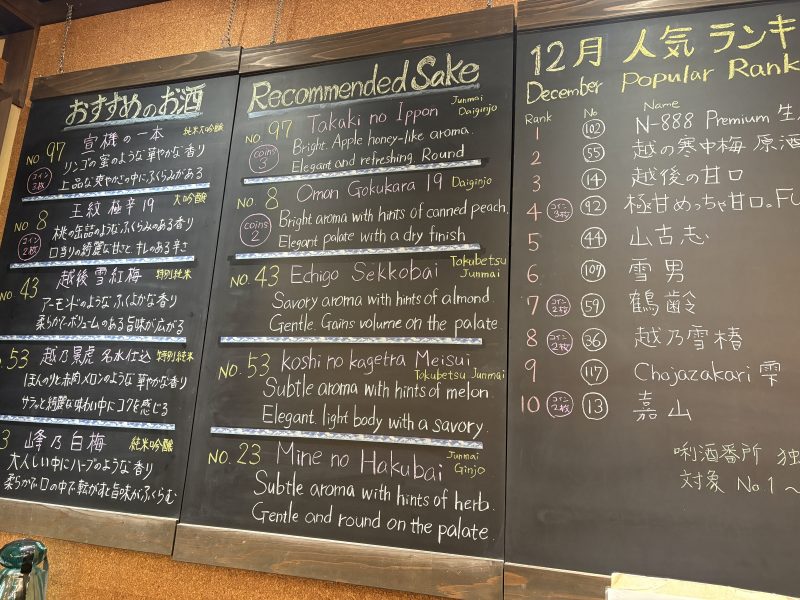 おすすめのお酒
No 97 宣機の一本 純米大吟醸
コイン3枚
リンゴの蜜のような華やかな香り
上品な爽やかさの中にふくらみがある
No 8 王紋 極辛19 大吟醸
コイン2枚
桃の缶詰のようなふくらみのある香り
口当りの綺麗な甘さとキレのある辛さ
No. 43 越後 雪紅梅 特別純米
アーモンドのようなふくよかな香り
柔らかでボリュームのある旨味が広がる
. 53 越乃景虎 名水仕込 特別純米
ほんのりと赤肉メロンのような華やかな香り
サラッと綺麗な味わい中にコクを感じる
3 峰乃白梅 純米吟醸
大人しい中にハーブのような香り
柔らかで口の中で転がすと旨味がふくらむ
Recommended Sake
No 97 Takaki no Ippon Junmai Daiginjo
coins 3
Bright. Apple honey-like aroma.
Elegant and refreshing. Round
No. 8 Omon Gokukara 19 Daiginjo
coins 2
Bright aroma with hints of canned peach.
Elegant palate with a dry finish
No. 43 Echigo Sekkobai Tokubetsu Junmai
Savory aroma with hints of almond.
Gentle. Gains volume on the palate.
No. 53 koshi no kagetra Meisui
Tokubetsu Junmai
Subtle aroma with hints of melon.
Elegant. light body with a savory.
No. 23 Mine no Hakubai Junmai Ginjo
Subtle aroma with hints of herb.
Gentle and round on the palate.
12月 人気 ランキ
December Popular Rank
Rank No Name
1 102 N-888 Premium 生
2 55 越の寒中梅 原酒
3 14 越後の甘口
4 コイン3枚 92 極甘めっちゃ甘口。FU
5 44 山古志
6 107 雪男
7 コイン2枚 59 鶴齢
8 コイン2枚 36 越乃雪椿
9 117 Chojazakari 雫
10 コイン2枚 13 嘉山
唎酒番所 独
対象 No.1～